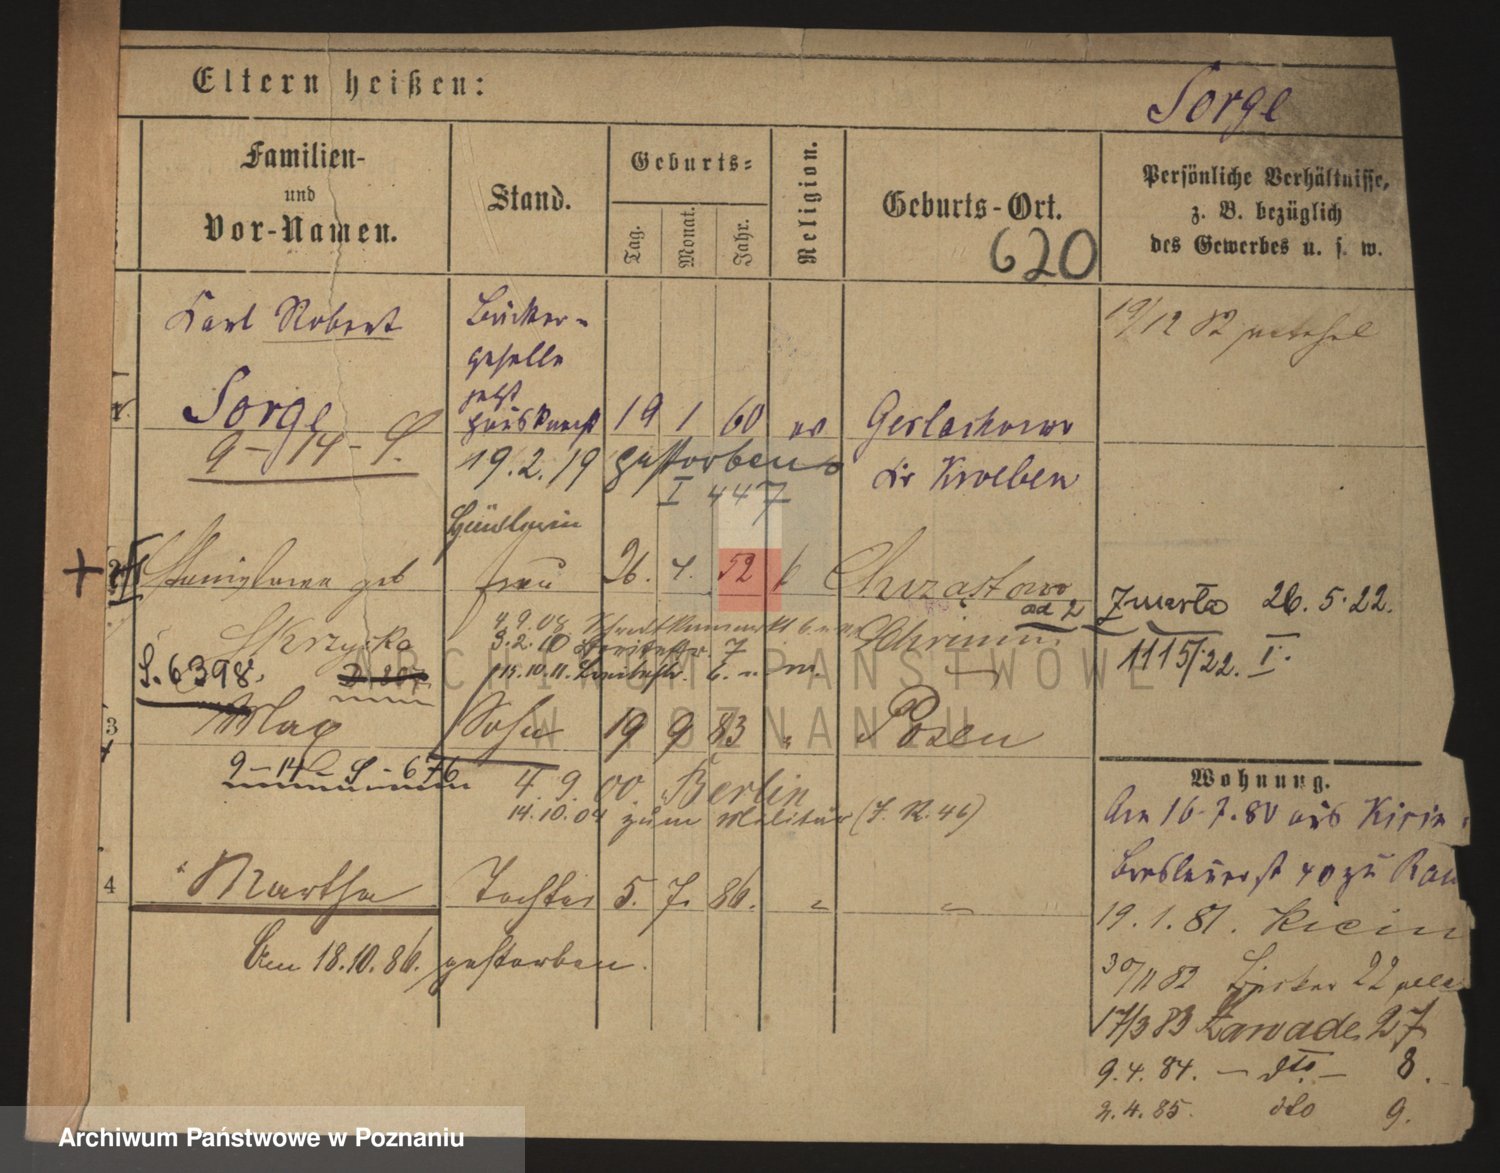 Eltern heißen:
Sorge
Familien-
und
Vor-Namen.
Stand.
Geburts-
Tag.
Monat.
Jahr.
Religion.
Geburts-Ort.
620
Persönliche Verhältnisse,
z. B. bezüglich
des Gewerbes u. s. w.
Karl Robert
Sorge
9-14-S.
Bäcker-
geselle
jetzt
Hausknecht
19 1 60 ev
Gerlachowo
Kr Kroeben
19/12 82
19.2.19 gestorben
I 447
Händlerin
2
Stanislawa geb
Skrzycka
frau
26. 4. 52 k
Chrzastowo
Schrimm
ad 2
Zmarła 26.5.22.
1115/22. I.
4.9.08
3.2.10 Breitestr. 7
15.10.11. Breitestr. 6.
S. 6398.
3
Max
Sohn
19 9 83 "
Posen
9-14-S-676
4.9.00 Berlin
14.10.04 zum Militär (7.12.46)
4
Martha
Tochter
5. 7. 86. "
"
Am 18.10.86. gestorben.
Wohnung.
Am 16.7.80 aus Kicin
Breslauerst 40 zu
19.1.81. Kicin
30/11 82 22
17/3 83 Zawade 27
9.4.84. - dto - 8.
2.4.85. dto 9.
ARCHIWUM PAŃSTWOWE
W POZNANIU
Archiwum Państwowe w Poznaniu